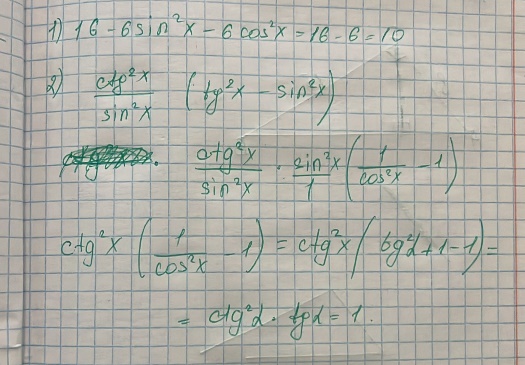 1) 16 - 6 sin²x - 6 cos²x = 16 - 6 = 10
2) ctg²x / sin²x (tg²x - sin²x)
ctg²x / sin²x · sin²x / 1 (1 / cos²x - 1)
ctg²x (1 / cos²x - 1) = ctg²x (tg²α + 1 - 1) =
= ctg²α · tgα = 1.